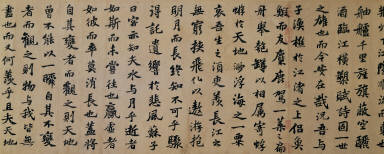 舳艫千里旌旗蔽空釃
酒臨江橫槊賦詩固一世
之雄也而今安在哉況吾與
子漁樵於江渚之上侶魚
蝦而友麋鹿駕一葉之扁
舟舉匏樽以相屬寄蜉
蝣於天地渺浮海之一粟
哀吾生之須臾羨長江之
無窮挾飛仙以遨遊抱
明月而長終知不可乎驟
得託遺響於悲風蘇子
曰客亦知夫水與月乎逝者
如斯而未嘗往也盈虛者
如彼而卒莫消長也蓋將
自其變者而觀之則天地
曾不能以一瞬自其不變
者而觀之則物與我皆無
盡而又何羨乎且夫天地